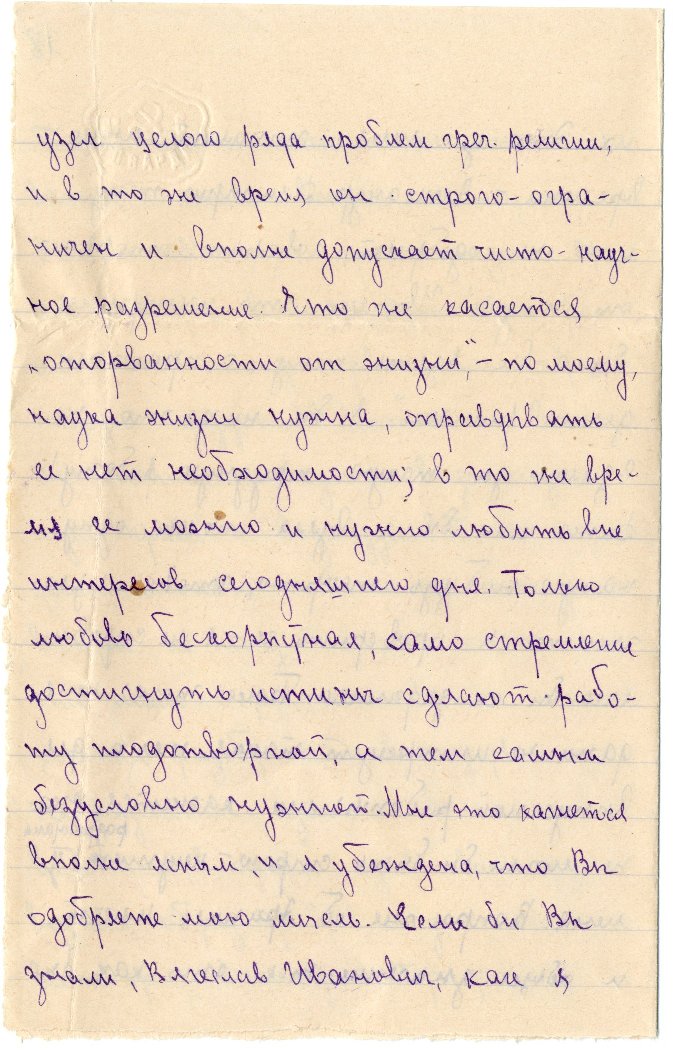 узел целого ряда проблем греч. религии,
и в то же время он строго-огра-
ничен и вполне допускает чисто-науч-
ное разрешение. Что же касается
„оторванности от жизни“, – по моему,
наука жизни нужна, оправдывать
ее нет необходимости; в то же вре-
мя ее можно и нужно любить вне
интересов сегодняшнего дня. Только
любовь бескорыстная, само стремление
достигнуть истины сделают рабо-
ту плодотворной, а тем самым
безусловно нужной. Мне это кажется
вполне ясным, и я убеждена, что Вы
одобряете мою мысль. Если бы Вы
знали, Вячеслав Иванович, как я